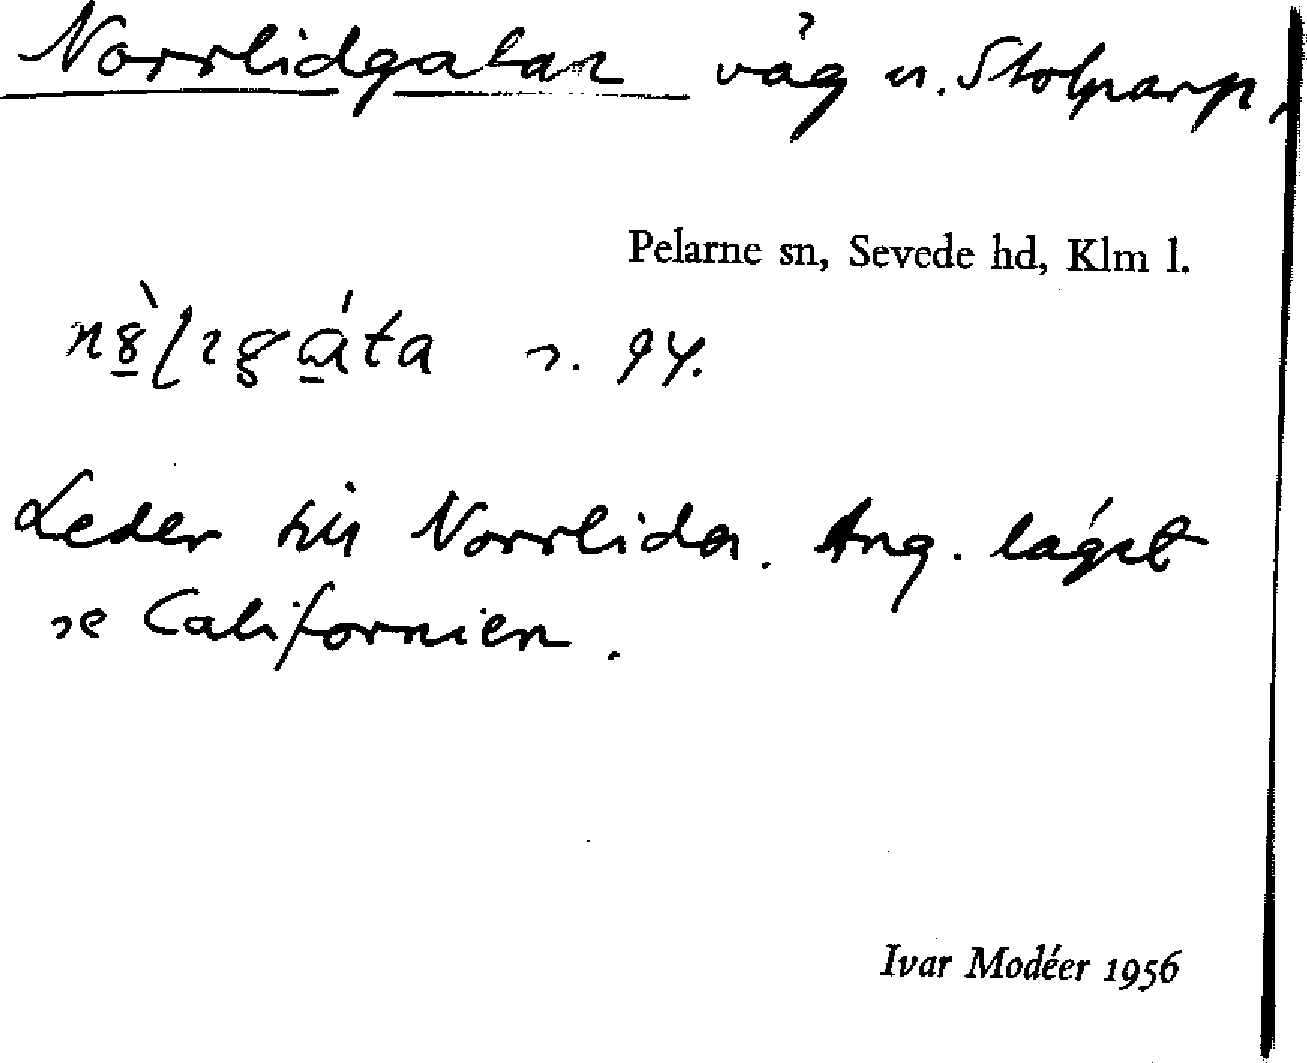 Norrlidgatan väg u. Stolparp,
Pelarne sn, Sevede hd, Klm l.
s. 94.
Leder till Norrlida. Ang. läget
se Californien.
Ivar Modéer 1956